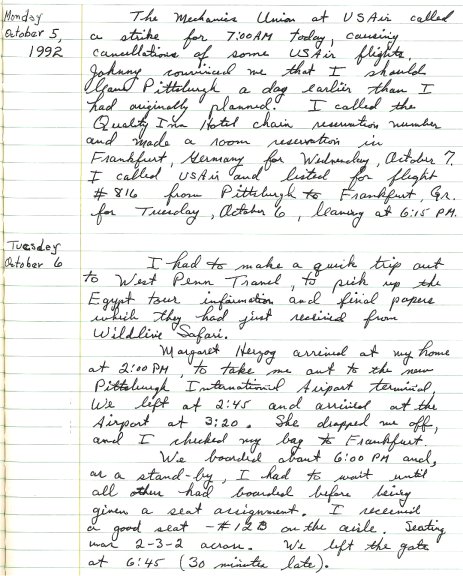 Monday
October 5,
1992
The Mechanics Union at USAir called
a strike for 7:00AM today, causing
cancellations of some USAir flights.
Johnny convinced me that I should
leave Pittsburgh a day earlier than I
had originally planned. I called the
Quality Inn Hotel chain reservation number
and made a room reservation in
Frankfurt, Germany for Wednesday, October 7.
I called USAir and listed for flight
#816 from Pittsburgh to Frankfurt, Gr.
for Tuesday, October 6, leaving at 6:15 PM.
Tuesday
October 6
I had to make a quick trip out
to West Penn Travel, to pick up the
Egypt tour information and final papers
which they had just received from
Wildlive Safari.
Margaret Herzog arrived at my home
at 2:00 PM, to take me out to the new
Pittsburgh International Airport terminal.
We left at 2:45 and arrived at the
Airport at 3:20. She dropped me off,
and I checked my bag to Frankfurt.
We boarded about 6:00 PM and,
as a stand-by, I had to wait until
all others had boarded before being
given a seat assignment. I received
a good seat - #12B on the aisle. Seating
was 2-3-2 across. We left the gate
at 6:45 (30 minutes late).